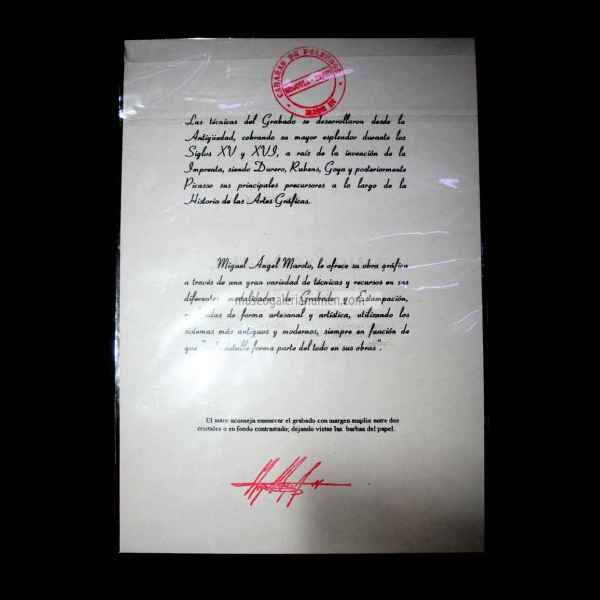 Las técnicas del Grabado se desarrollaron desde la
Antigüedad, cobrando su mayor esplendor durante los
Siglos XV y XVI, a raís de la invención de la
Imprenta, siendo Durero, Rubens, Goya y posteriormente
Picasso sus principales precursores a lo largo de la
Historia de las Artes Gráficas.
Miguel Angel Maroto, le ofrece su obra gráfica
a través de una gran variedad de técnicas y recursos en sus
diferentes modalidades de Grabado y Estampación,
de forma artesanal y artística, utilizando los
museogalerianumen.com
sistemas más antiguos y modernos, siempre en función de
que " detalle forma parte del todo en sus obras".
El autor aconseja enmarcar el grabado con margen amplio entre dos
cristales o en fondo contrastado, dejando vistas las barbas del papel.